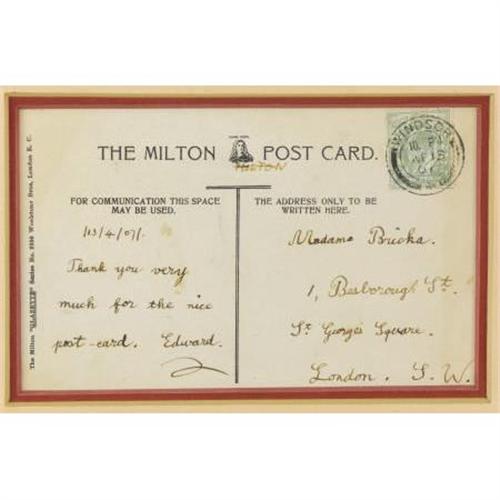 THE MILTON POST CARD.
MILTON
FOR COMMUNICATION THIS SPACE
MAY BE USED.
THE ADDRESS ONLY TO BE
WRITTEN HERE.
13/4/07.
Thank you very
much for the nice
post-card. Edward.
Madame Bricka.
1, Besborough St.
St George's Square.
London. S. W.
WINDSOR
The Milton "GLAZETTE" Series No. Woolstone Bros, London E. C.